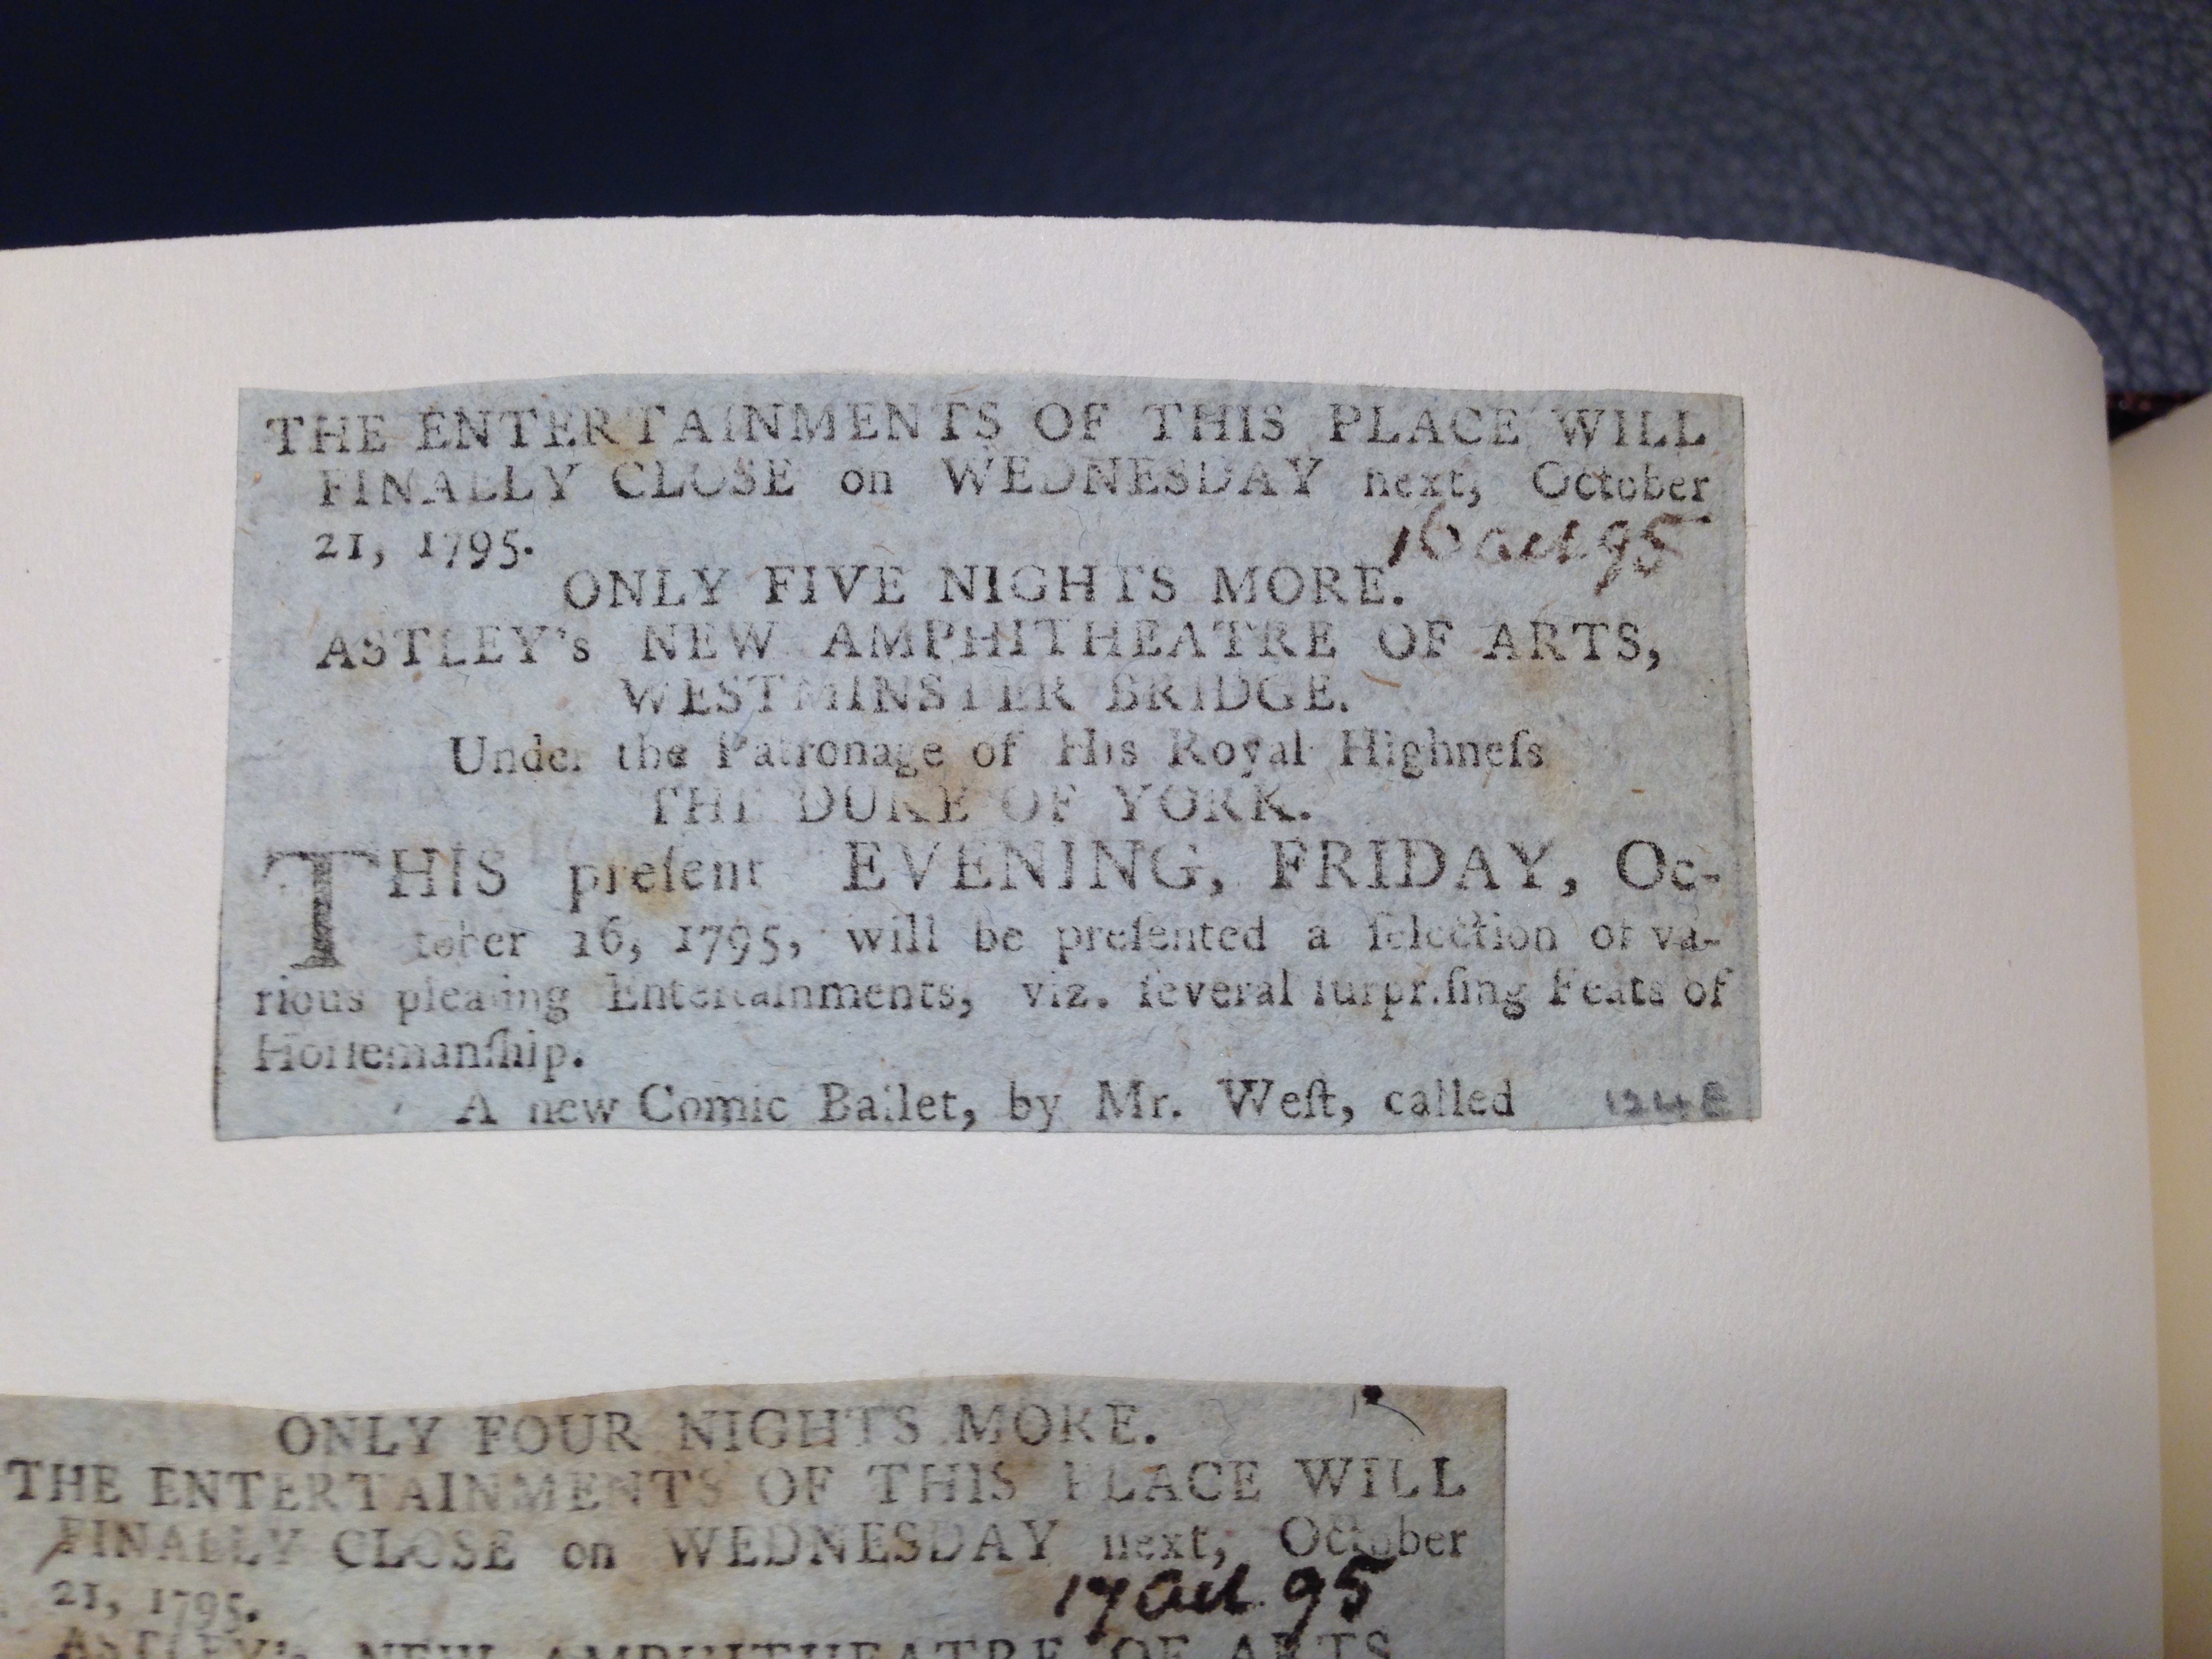 THE ENTERTAINMENTS OF THIS PLACE WILL
FINALLY CLOSE on WEDNESDAY next, October
21, 1795.
16 Oct 95
ONLY FIVE NIGHTS MORE.
ASTLEY's NEW AMPHITHEATRE OF ARTS,
WESTMINSTER BRIDGE.
Under the Patronage of His Royal Highneſs
THE DUKE OF YORK.
THIS preſent EVENING, FRIDAY, Oc-
tober 16, 1795, will be preſented a ſelection of va-
rious pleaſing Entertainments, viz. ſeveral ſurpriſing Feats of
Horſemanſhip.
A new Comic Ballet, by Mr. Weſt, called
ONLY FOUR NIGHTS MORE.
THE ENTERTAINMENTS OF THIS PLACE WILL
FINALLY CLOSE on WEDNESDAY next, October
21, 1795.
17 Oct 95
ASTLEY's NEW AMPHITHEATRE OF ARTS